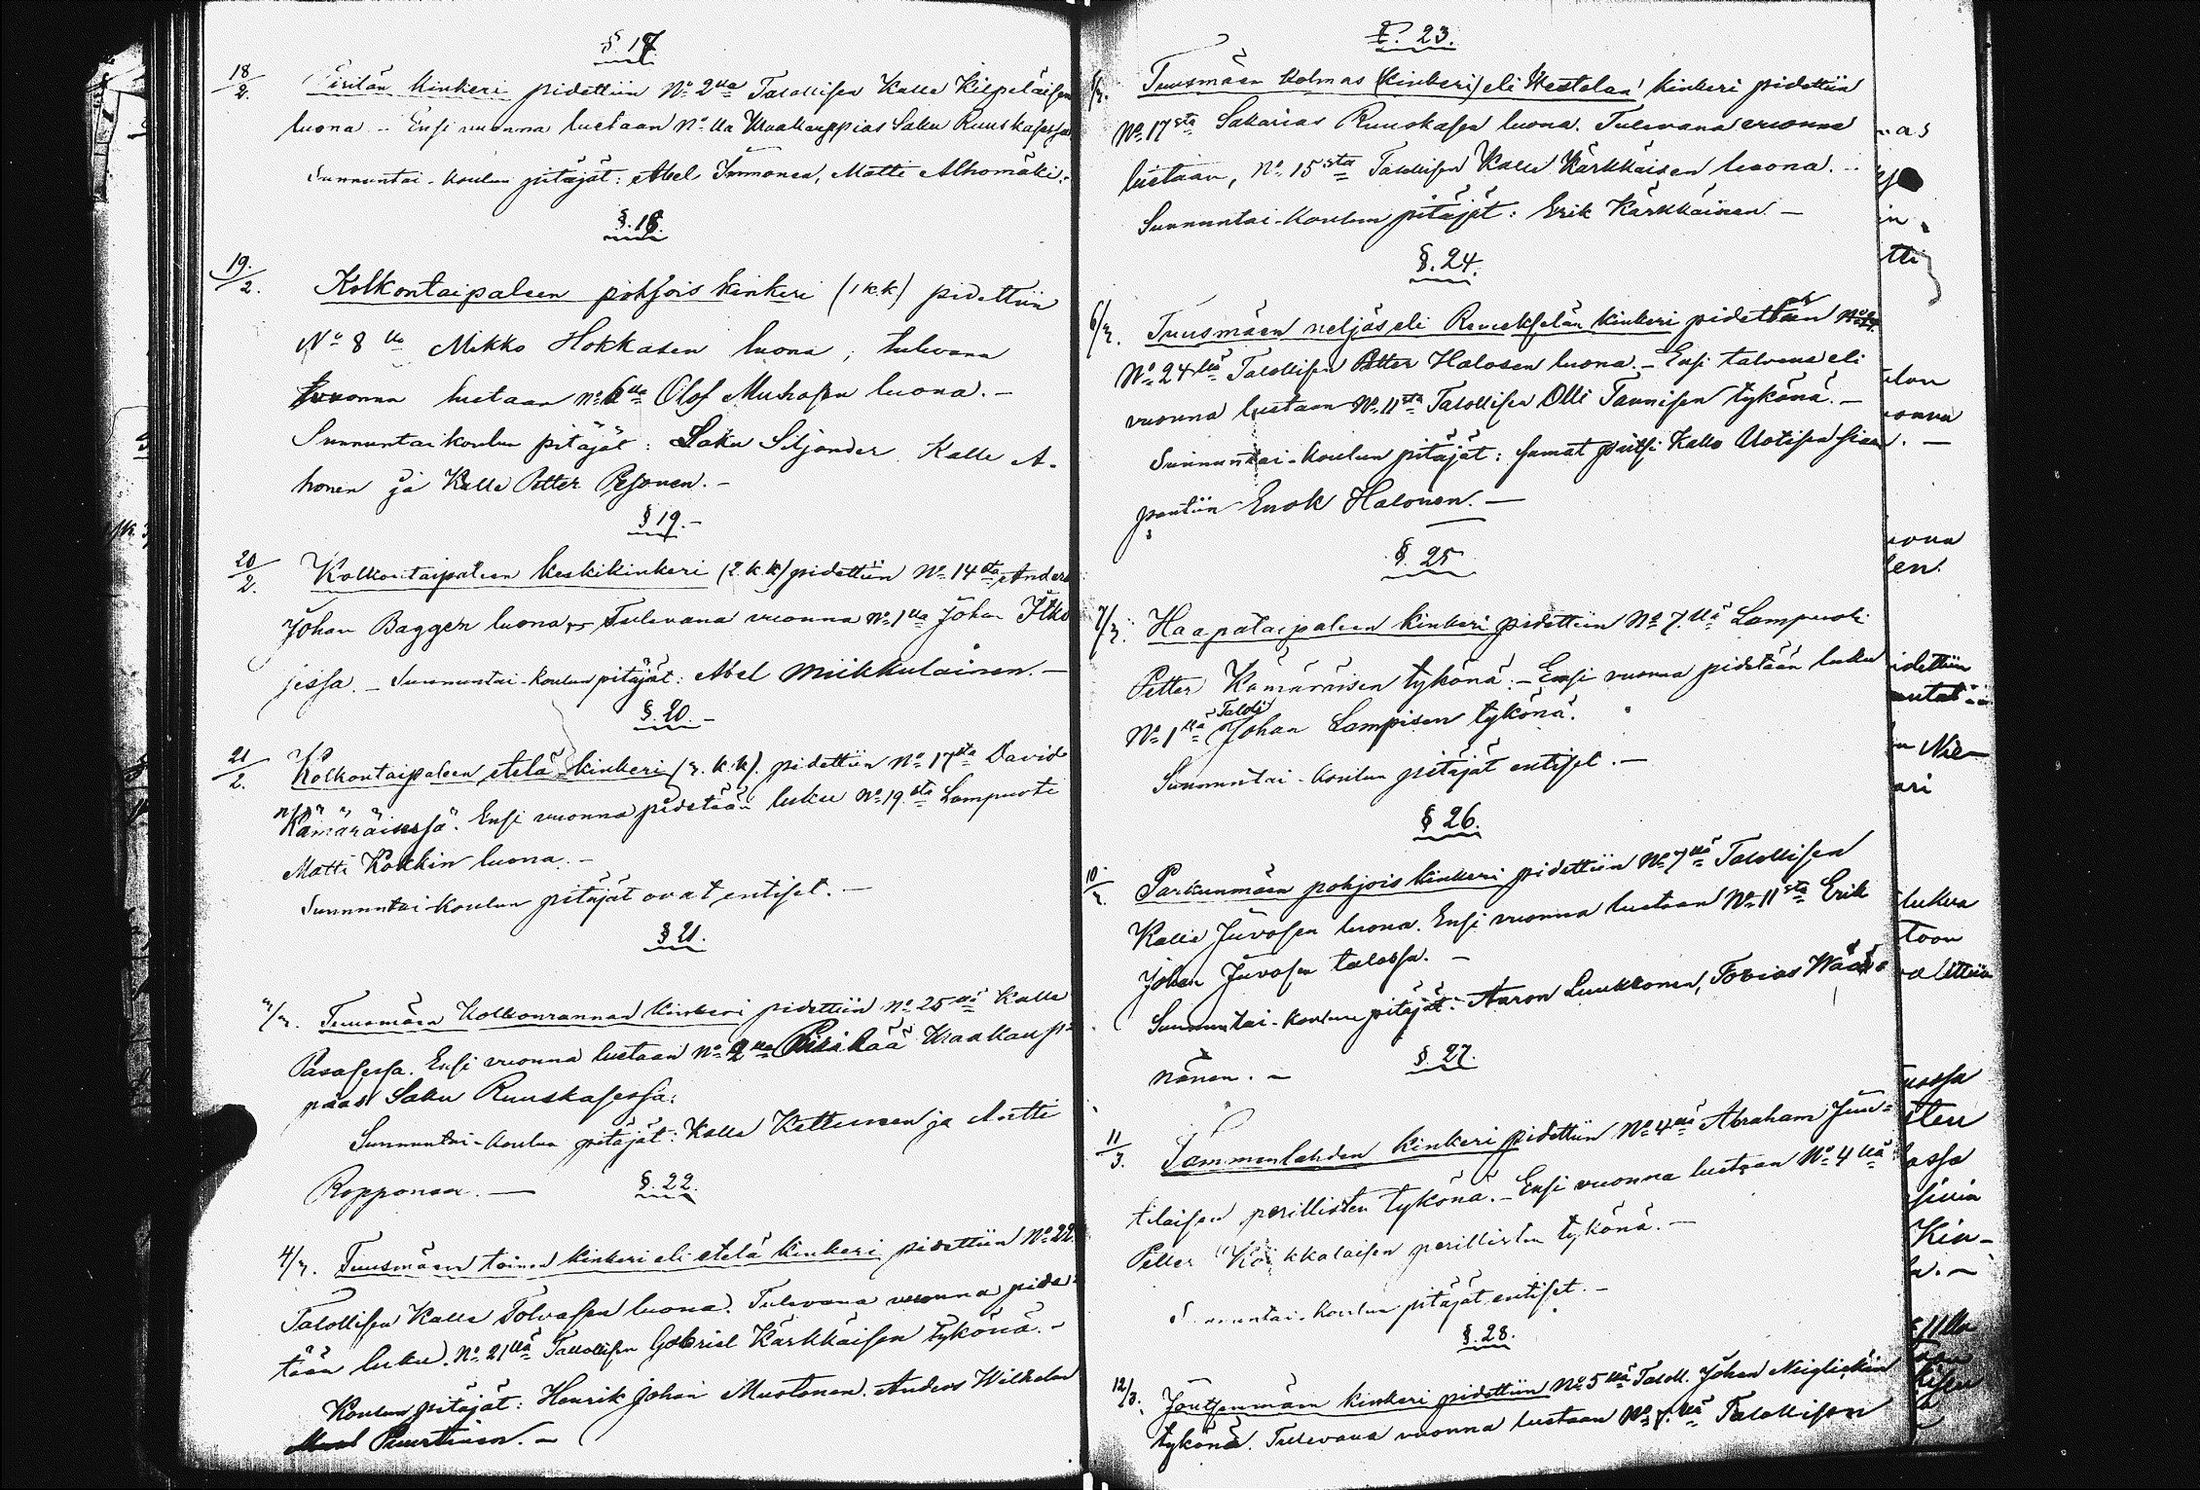 §. 17
18/2. Pirilän kinkeri pidettiin No 2lla Talollisen Kalle Kilpeläisen
luona. - Ensi vuonna luetaan No lla Maakauppias Saku Ruuskasessa
Sunnuntai-koulun pitäjät: Abel Immonen, Matti Alhomäki.
§. 18.
19./2. Kolkontaipaleen pohjois kinkeri (1 k.k) pidettiin
No 8lla Mikko Hokkasen luona, tulevana
vuonna luetaan No 6lla Olof Muhosen luona. -
Sunnuntaikoulun pitäjät: Saku Siljander Kalle A-
honen ja Kalle Petter Pesonen. -
§ 19. -
20/2. Kolkontaipaleen keskikinkeri (2. k.k) pidettiin No 14sta Anders
Johan Bagger luona Tulevana vuonna No 1llä Johan Itko
jessa. - Sunnuntai-koulun pitäjät: Abel Miikkulainen. -
§. 20. -
21/2. Kolkontaipaleen etelä kinkeri (3. k.k). pidettiin No 17sta David
Kämäräisessä. Ensi vuonna pidetään luku No 19sta Lampuoti
Matti Kokkin luona. -
Sunnuntai-koulun pitäjät ovat entiset. -
§ 21.
3/3. Tuusmäen Kolkonrannan kinkeri pidettiin No 25llä Kalle
Pasasessa. Ensi vuonna luetaan No 2lla Maakaup=
pias Saku Ruuskasessa.
Sunnuntai-koulun pitäjät: Kalle Kettunen ja Antti
Ropponen. -
§. 22.
4/3. Tuusmäen toinen kinkeri eli etelä kinkeri pidettiin No 22
Talollisen Kalle Tolvasen luona. Tulevana vuonna pide=
tään luku. No 21llä Talollisen Gabriel Kärkkäisen tykönä. -
Koulun pitäjät: Henrik Johan Mustonen. Anders Wilhelm
Puurtinen. -
§. 23.
5/3. Tuusmäen kolmas (kinkeri) eli Westolan kinkeri pidettiin
No 17sta Sakarias Ruuskasen luona. Tulevana vuonna
luetaan, No 15sta Talollisen Kalle Kärkkäisen luona. -
Sunnuntai-koulun pitäjät: Erik Kärkkäinen. -
§. 24.
6/3. Tuusmäen neljäs eli Remekselän kinkeri pidettiin
No 24llä Talollisen Petter Halosen luona. - Ensi talvena eli
vuonna luetaan No 11sta Talollisen Olli Taunisen tykönä. -
Sunnuntai-koulun pitäjät: samat paitsi Kalle Uotisen siaan
pantiin Enok Halonen. -
§. 25
7/3. Haapataipaleen kinkeri pidettiin No 7.llä Lampuoti
Petter Kämäräisen tykönä. - Ensi vuonna pidetään luku
No 1llä Talol. Johan Lampisen tykönä.
Sunnuntai-koulun pitäjät entiset. -
§ 26.
10/3. Parkunmäen pohjois kinkeri pidettiin No 7llä Talollisen
Kalle Juvosen luona. Ensi vuonna luetaan No 11sta Erik
Johan Juvosen talossa. -
Sunnuntai-koulun pitäjät: Aaron Luukkonen, Tobias Wää=
nänen. -
§. 27.
11/3. Tammenlahden kinkeri pidettiin No 4llä Abraham Juu=
tilaisen perillisten tykönä. - Ensi vuonna luetaan No 4llä
Petter Kokkalaisen perillisten tykönä. -
Sunnuntai-koulun pitäjät entiset. -
§. 28.
12/3. Joutsenmäen kinkeri pidettiin No 5llä Taloll. Johan Neiglickin
tykönä. Tulevana vuonna luetaan No 7.llä Talollisen